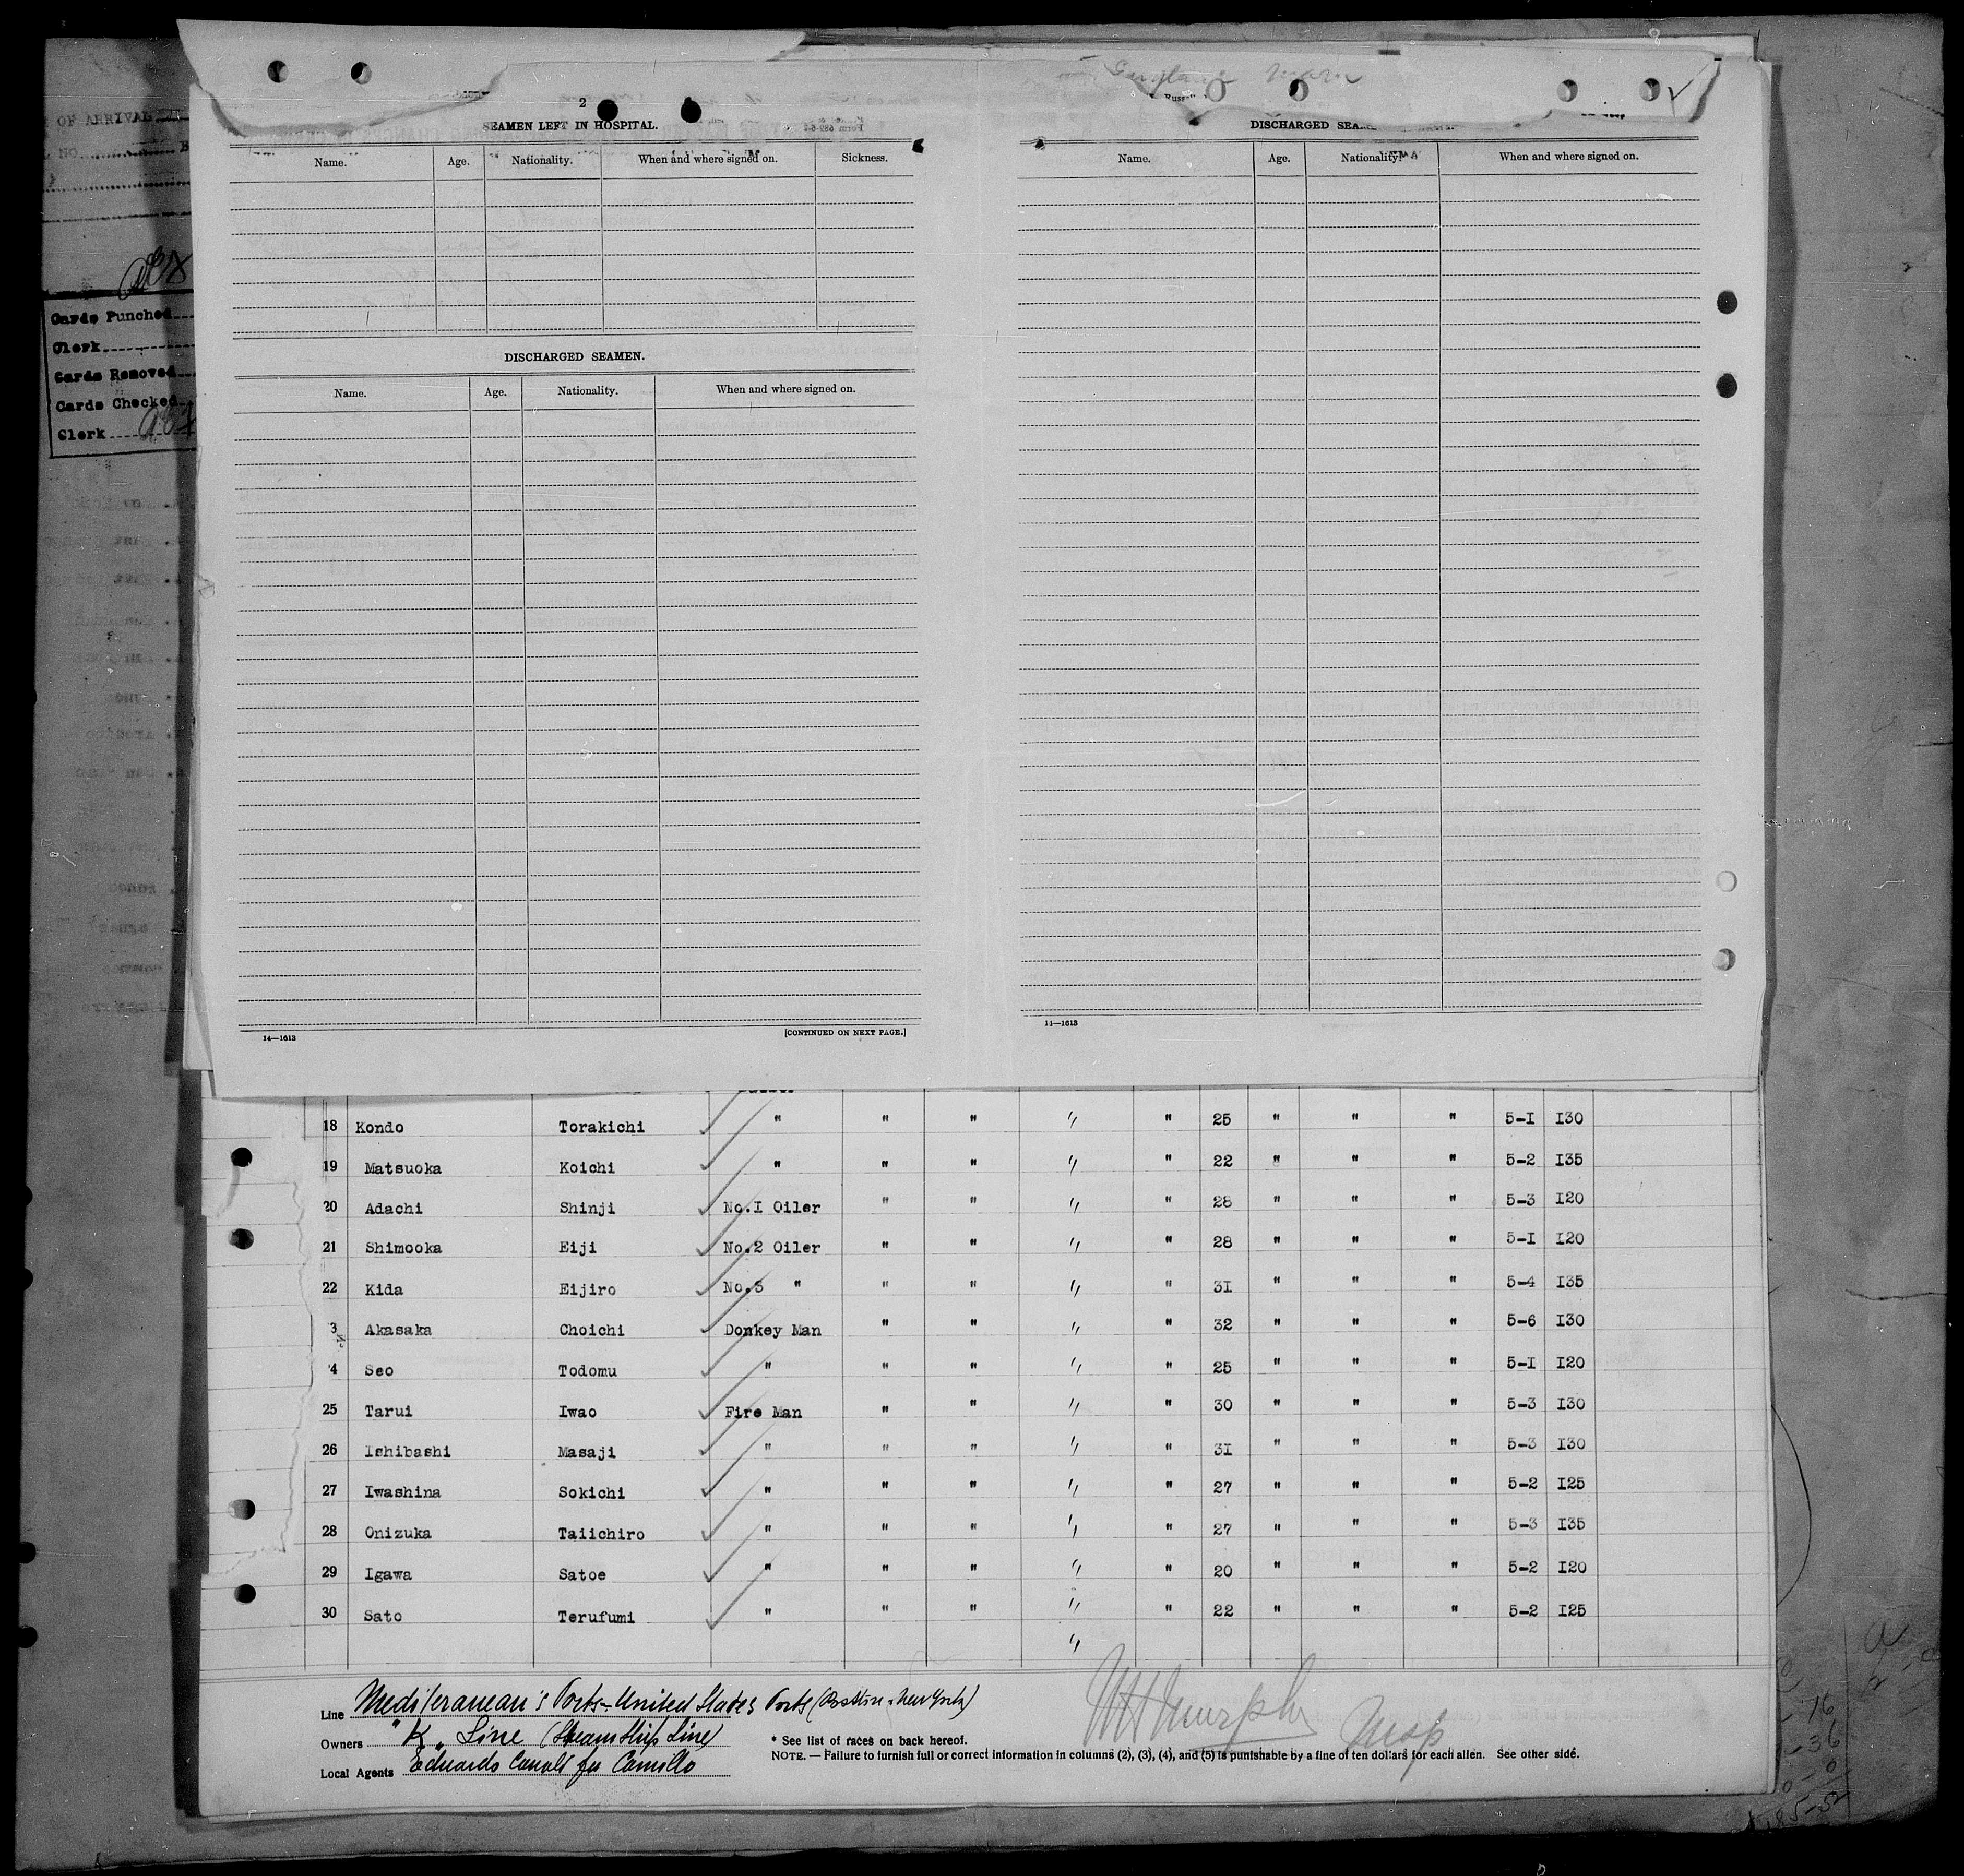 OF ARRIVAL
NO.
Cards Punched
Clerk
Cards Removed
Cards Checked
Clerk
2
SEAMEN LEFT IN HOSPITAL.
Name. Age. Nationality. When and where signed on. Sickness.
DISCHARGED SEAMEN.
Name. Age. Nationality. When and where signed on.
14—1613
[CONTINUED ON NEXT PAGE.]
DISCHARGED
Name. Age. Nationality. When and where signed on.
14—1613
18 Kondo Torakichi " " " " " 25 " " " 5-I I30
19 Matsuoka Koichi " " " " " 22 " " " 5-2 I35
20 Adachi Shinji No.I Oiler " " " " 28 " " " 5-3 I20
21 Shimooka Eiji No.2 Oiler " " " " 28 " " " 5-I I20
22 Kida Eijiro No.3 " " " " " 31 " " " 5-4 I35
3 Akasaka Choichi Donkey Man " " " " 32 " " " 5-6 I30
4 Seo Todomu " " " " " 25 " " " 5-I I20
25 Tarui Iwao Fire Man " " " " 30 " " " 5-3 I30
26 Ishibashi Masaji " " " " " 3I " " " 5-3 I30
27 Iwashina Sokichi " " " " " 27 " " " 5-2 I25
28 Onizuka Taiichiro " " " " " 27 " " " 5-3 I35
29 Igawa Satoe " " " " " 20 " " " 5-2 I20
30 Sato Terufumi " " " " " 22 " " " 5-2 I25
"
Line Mediteranean's Ports-United States Ports
Owners "K" Line (Steamship Line)
Local Agents Eduardo Canali fu Camillo
* See list of races on back hereof.
NOTE.—Failure to furnish full or correct information in columns (2), (3), (4), and (5) is punishable by a fine of ten dollars for each alien. See other side.
WH Murphy